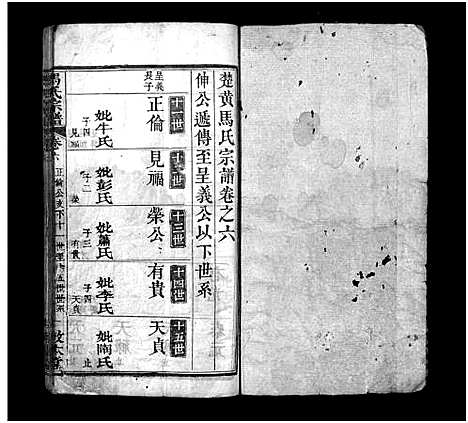 楚黃馬氏宗譜卷之六
伸公遞傳至呈義公以下世系
十一世
呈義長子
正倫
妣牛氏
子四
見福
十二世
見福
妣彭氏
子二
榮
十三世
榮公
妣蕭氏
子三
有貴
十四世
有貴
妣李氏
子四
天貞
十五世
天貞
妣陶氏
止
馬氏宗譜
卷之六
正倫公支下十一世至十五世世系